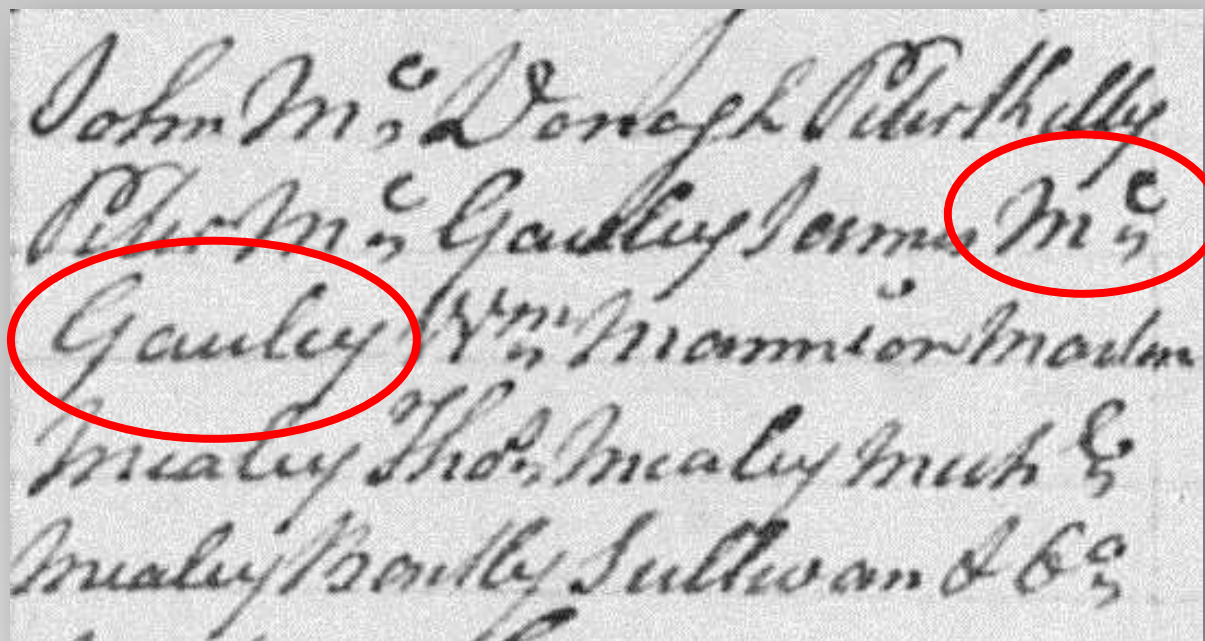 John Mc Donogh Peter Kelly
Peter Mc Gauley James Mc
Gauley Wm Mannion Martin
Mealey Thos Mealey Mich
Mealey Bartly Sullivan & Co